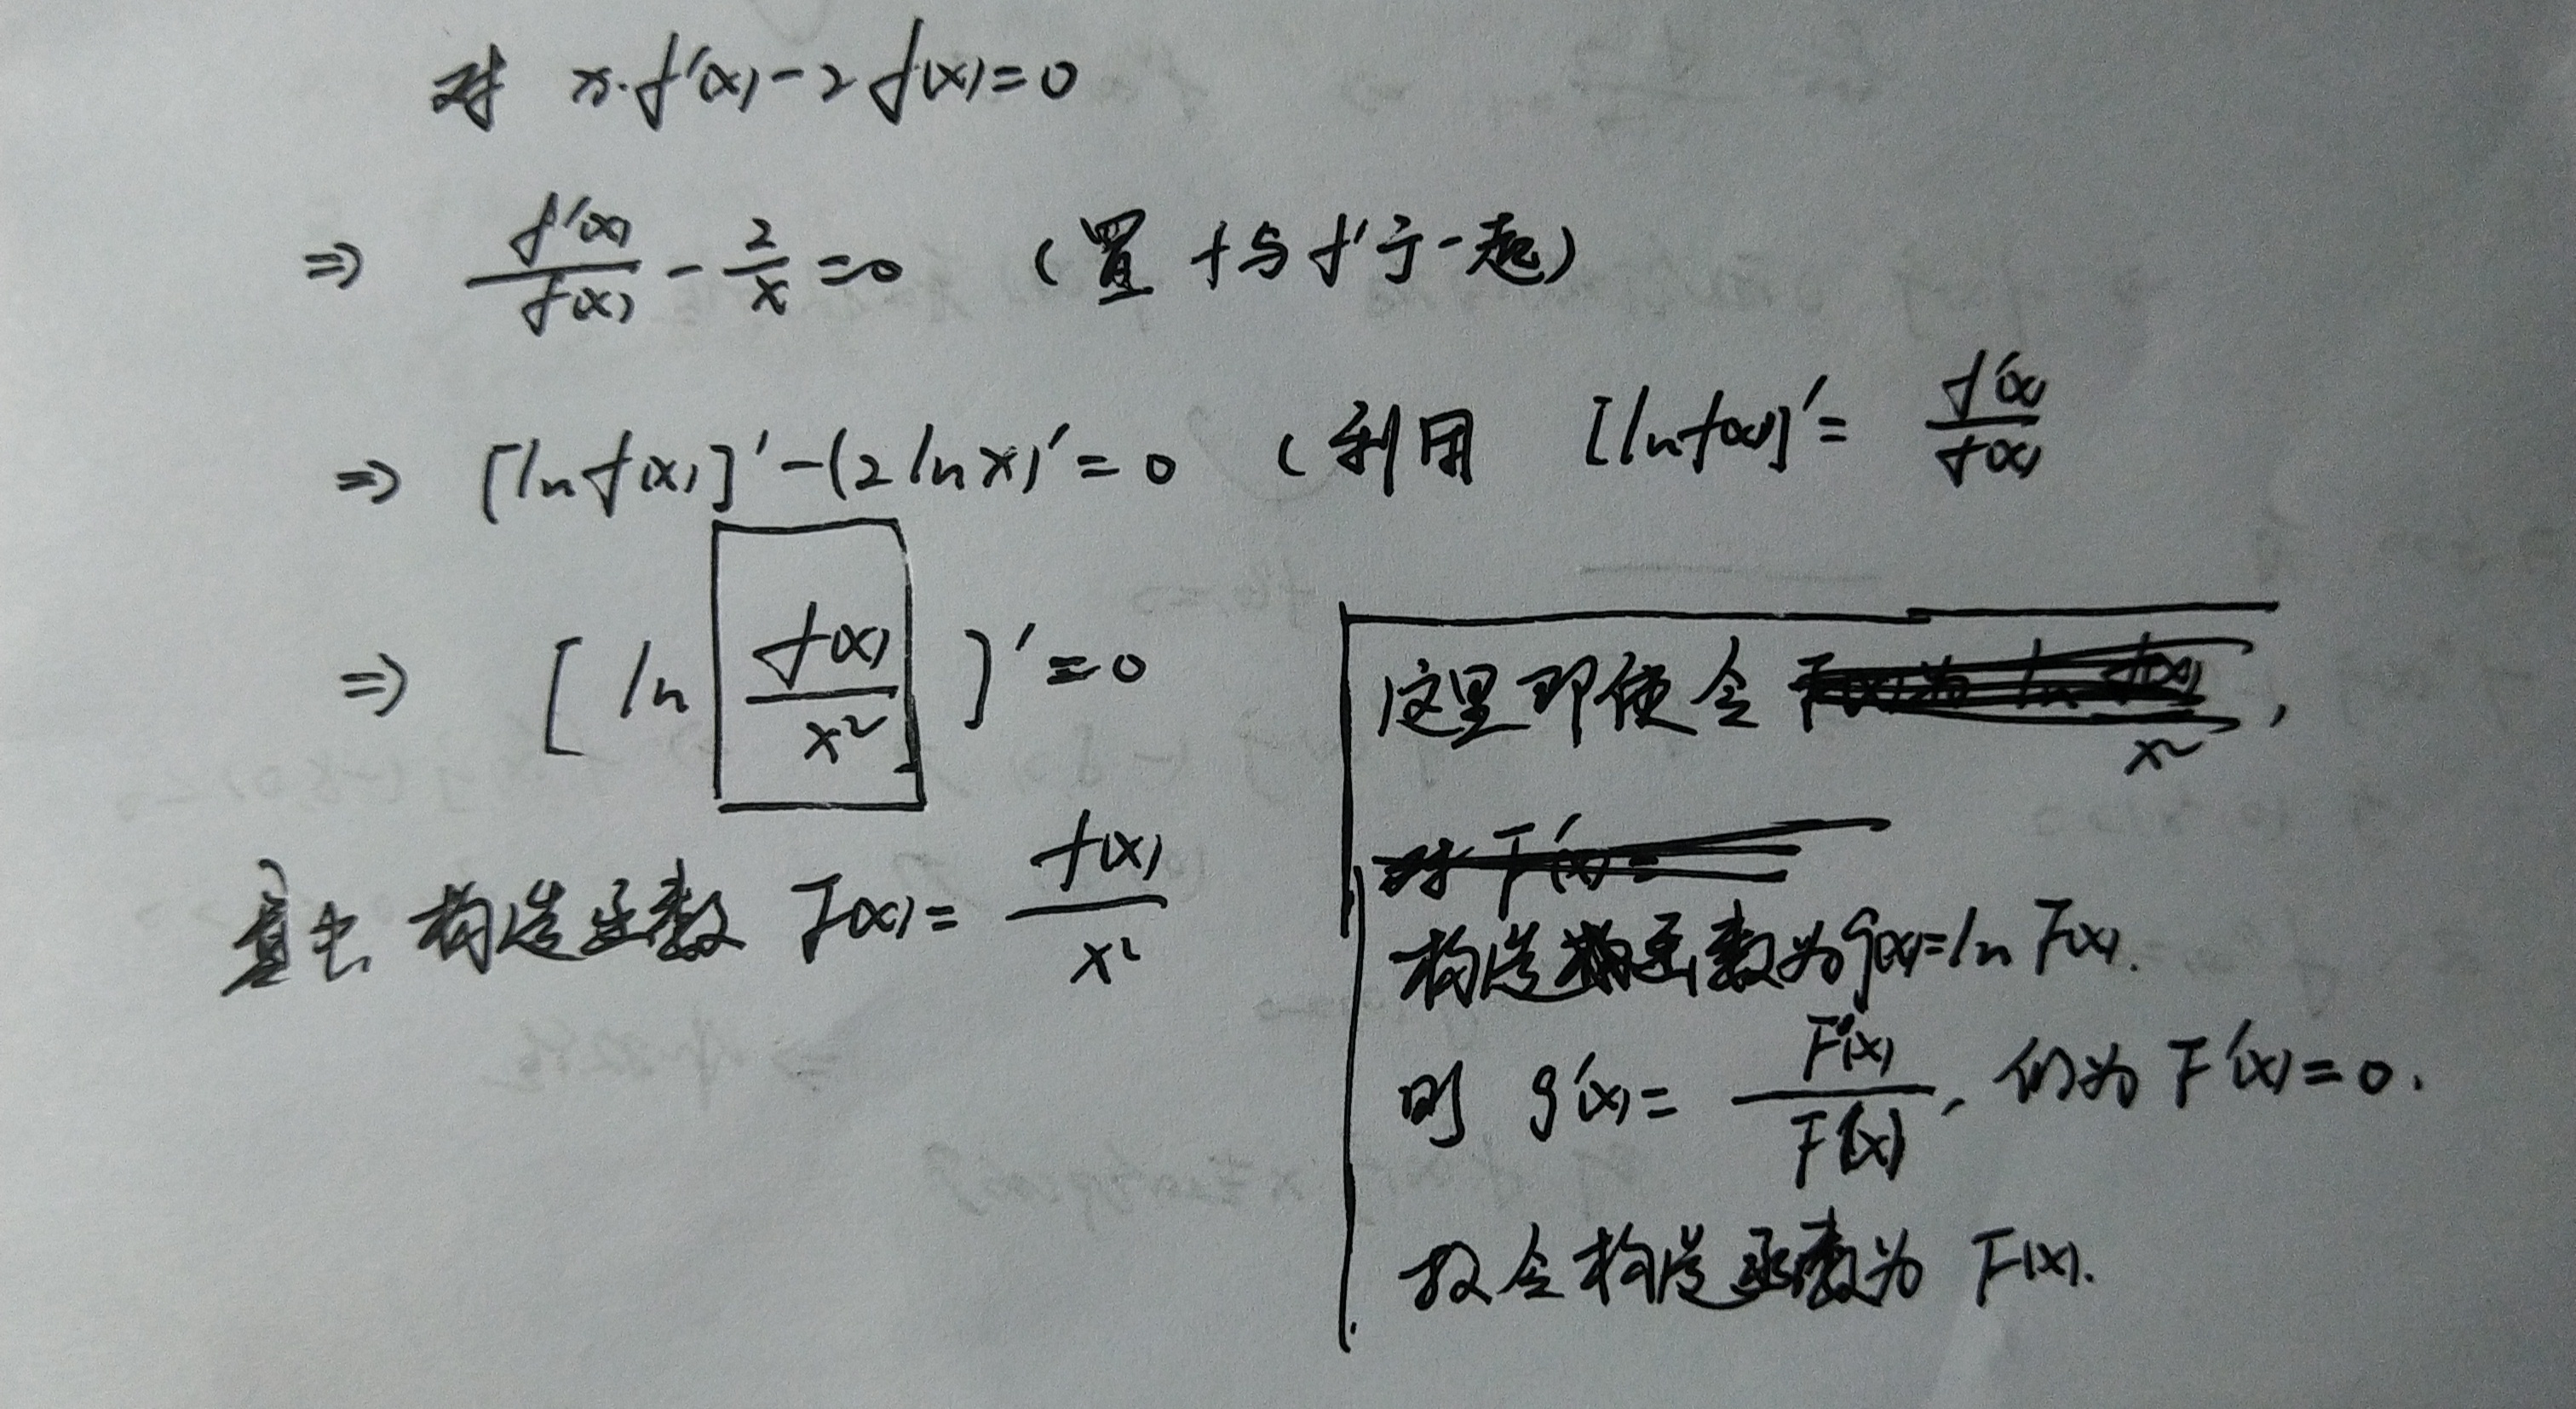 对 x·f'(x)-2f(x)=0
⇒ f'(x)/f(x) - 2/x =0 (置 f与f'于一起)
⇒ [lnf(x)]'-(2lnx)'=0 (利用 [lnf(x)]'= f'(x)/f(x)
⇒ [ ln f(x)/x² ]'=0
构造函数 F(x)= f(x)/x²
这里即使令
构造函数为g(x)=ln F(x).
则 g'(x)= F'(x)/F(x), 仍为 F'(x)=0.
故令构造函数为 F(x).